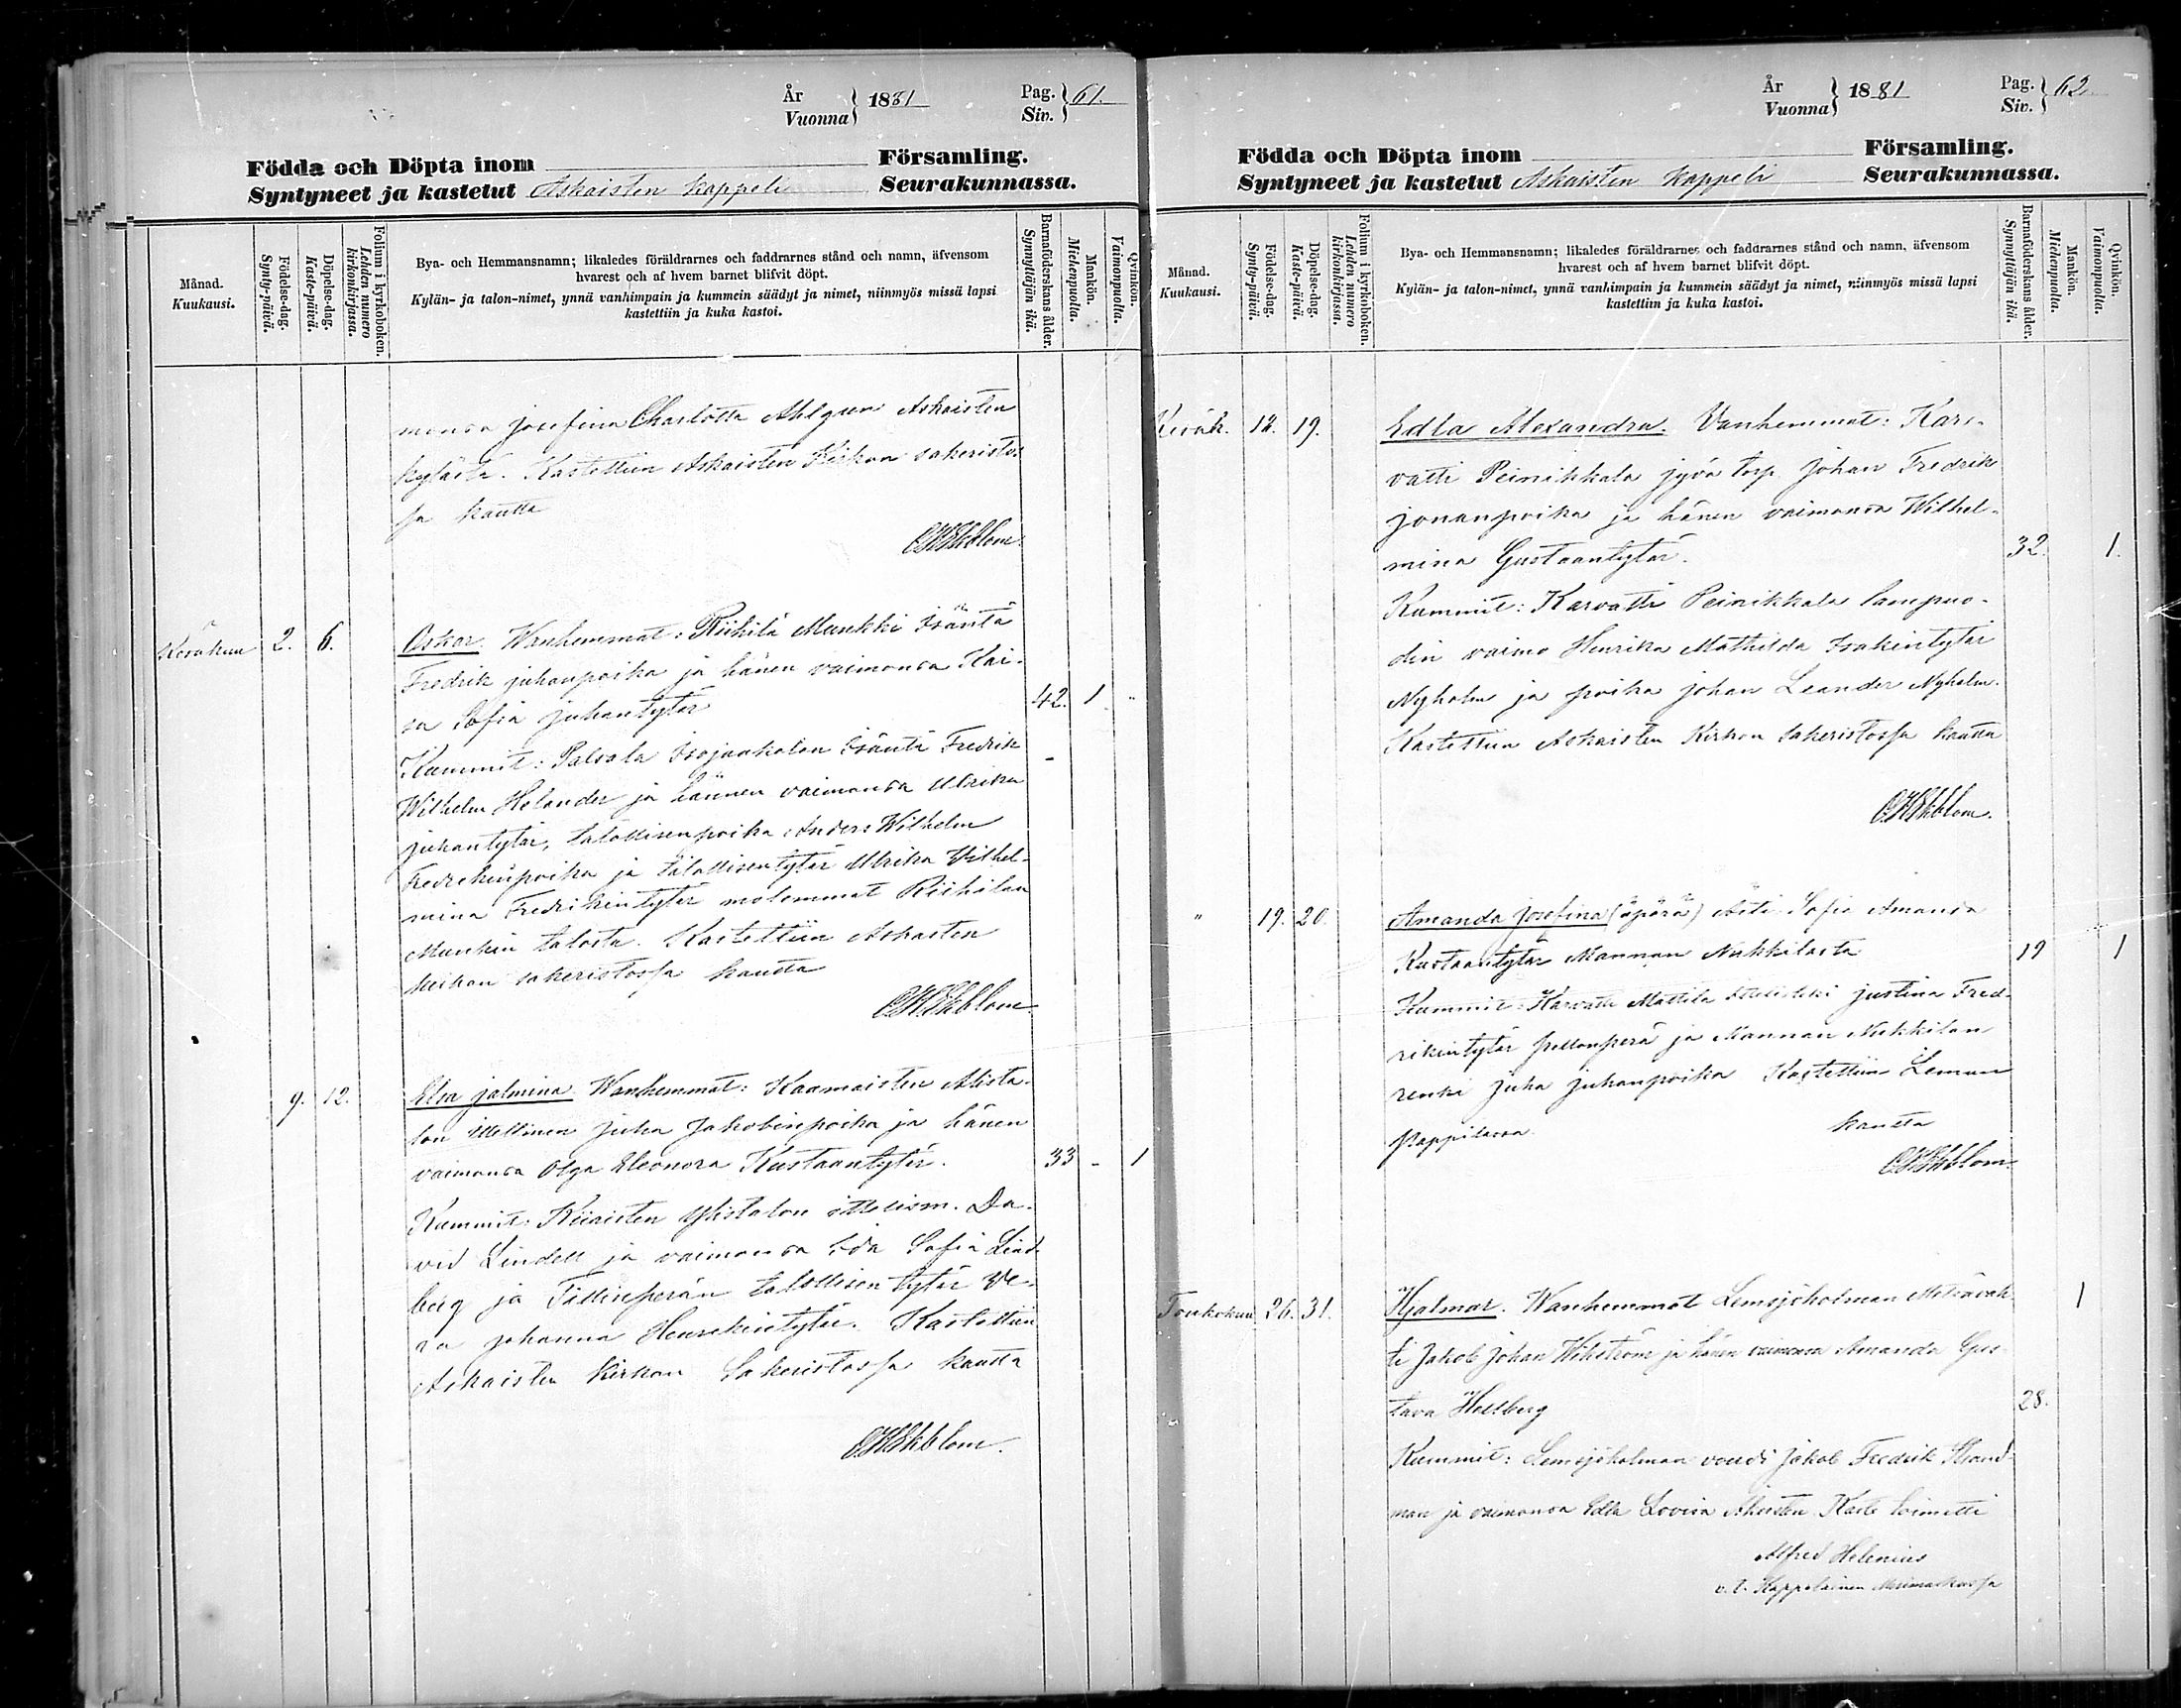 År
Vuonna
1881
Pag.
Siv.
61.
Födda och Döpta inom Församling.
Syntyneet ja kastetut Askaisten kappeli Seurakunnassa.
Månad.
Kuukausi.
Födelse-dag.
Synty-päivä.
Döpelse-dag.
Kaste-päivä.
Folium i kyrkoboken.
Lehden numero
kirkonkirjassa.
Bya- och Hemmansnamn; likaledes föräldrarnes och faddrarnes stånd och namn, äfvensom
hvarest och af hvem barnet blifvit döpt.
Kylän- ja talon-nimet, ynnä vanhimpain ja kummein säädyt ja nimet, niinmyös missä lapsi
kastettiin ja kuka kastoi.
Barnaföderskans ålder.
Synnyttäjän ikä.
Mankön.
Miehenpuolta.
Qvinkön.
Vaimonpuolta.
monsa Josefina Charlotta Ahlgren Askaisten
kylästä. Kastettiin Askaisten Kirkon sakeristos-
sa kautta
Ekblom.
Kesäkuu 2. 6. Oskar. Wanhemmat: Riihilä Munkki Isäntä
Fredrik Juhanpoika ja hänen vaimonsa Kai-
sa Sofia Juhantytär 42. 1 "
Kummit: Palsala Isojaakolan Isäntä Fredrik
Wilhelm Helander ja hännen vaimonsa Ulrika
Juhantytär, talollisenpoika Anders Wilhelm
Fredrekinpoika ja talollisentytär Ulrika Vilhel-
mina Fredrikintytär molemmat Riihilan
Munkin talosta. Kastettiin Askasten
kirkon sakeristossa kautta
Ekblom.
9. 12. Elsa Jalmina. Wanhemmat: Kaamaisten Alista-
lon Itellinen Juha Jakobinpoika ja hänen
vaimonsa Olga Eleonora Kustaantytär. 33 - 1
Kummit: Ylistalon ittelism. Da-
vid Lindell ja vaimonsa Ida Sofia Lind-
berg ja talollisen tytär We-
ra Johanna Henrekintytär. Kastettiin
Askaisten kirkon Sakeristossa kautta
Ekblom.
År
Vuonna
1881
Pag.
Siv.
62
Födda och Döpta inom Församling.
Syntyneet ja kastetut Askaisten kappeli Seurakunnassa.
Månad.
Kuukausi.
Födelse-dag.
Synty-päivä.
Döpelse-dag.
Kaste-päivä.
Folium i kyrkoboken.
Lehden numero
kirkonkirjassa.
Bya- och Hemmansnamn; likaledes föräldrarnes och faddrarnes stånd och namn, äfvensom
hvarest och af hvem barnet blifvit döpt.
Kylän- ja talon-nimet, ynnä vanhimpain ja kummein säädyt ja nimet, niinmyös missä lapsi
kastettiin ja kuka kastoi.
Barnaföderskans ålder.
Synnyttäjän ikä.
Mankön.
Miehenpuolta.
Qvinkön.
Vaimonpuolta.
Kesäk. 12. 19. Edla Alexandra. Vanhemmat: Kar-
vatti Peinikkala jyvä torp. Johan Fredrik
Jonanpoika ja hänen vaimonsa Wilhel-
mina Gustaantytär. 32. 1.
Kummit: Karvatti Peinikkala lampuo-
din vaimo Henrika Mathilda Isakintytär
Nyholm ja poika Johan Leander Nyholm.
Kastettiin Askaisten Kirkon sakeristossa kautta
Ekblom.
" 19. 20. Amanda Josefina (äpärä) Äiti Sofia Amanda
Kustaantytär Mannan Nukkilasta 19 1
Kummit: Karvatti Mattila Justina Fred-
rikintytär ja Mannan Nukkilan
renki Juha Juhanpoika Kastettiin Lemun
Pappilassa. kautta
Ekblom.
Toukokuu 26. 31. Hjalmar. Wanhemmat Lemsjöholman Metsävah-
ti Jakob Johan Wikström ja hänen vaimonsa Amanda Gus-
tava Hellberg 28. 1
Kummit: Lemsjöholman voudi Jakob Fredrik Strand-
man ja vaimonsa Edla Lovisa Kaste toimitti
Alfred Helenius
v. t. Kappalainen Merimaskussa